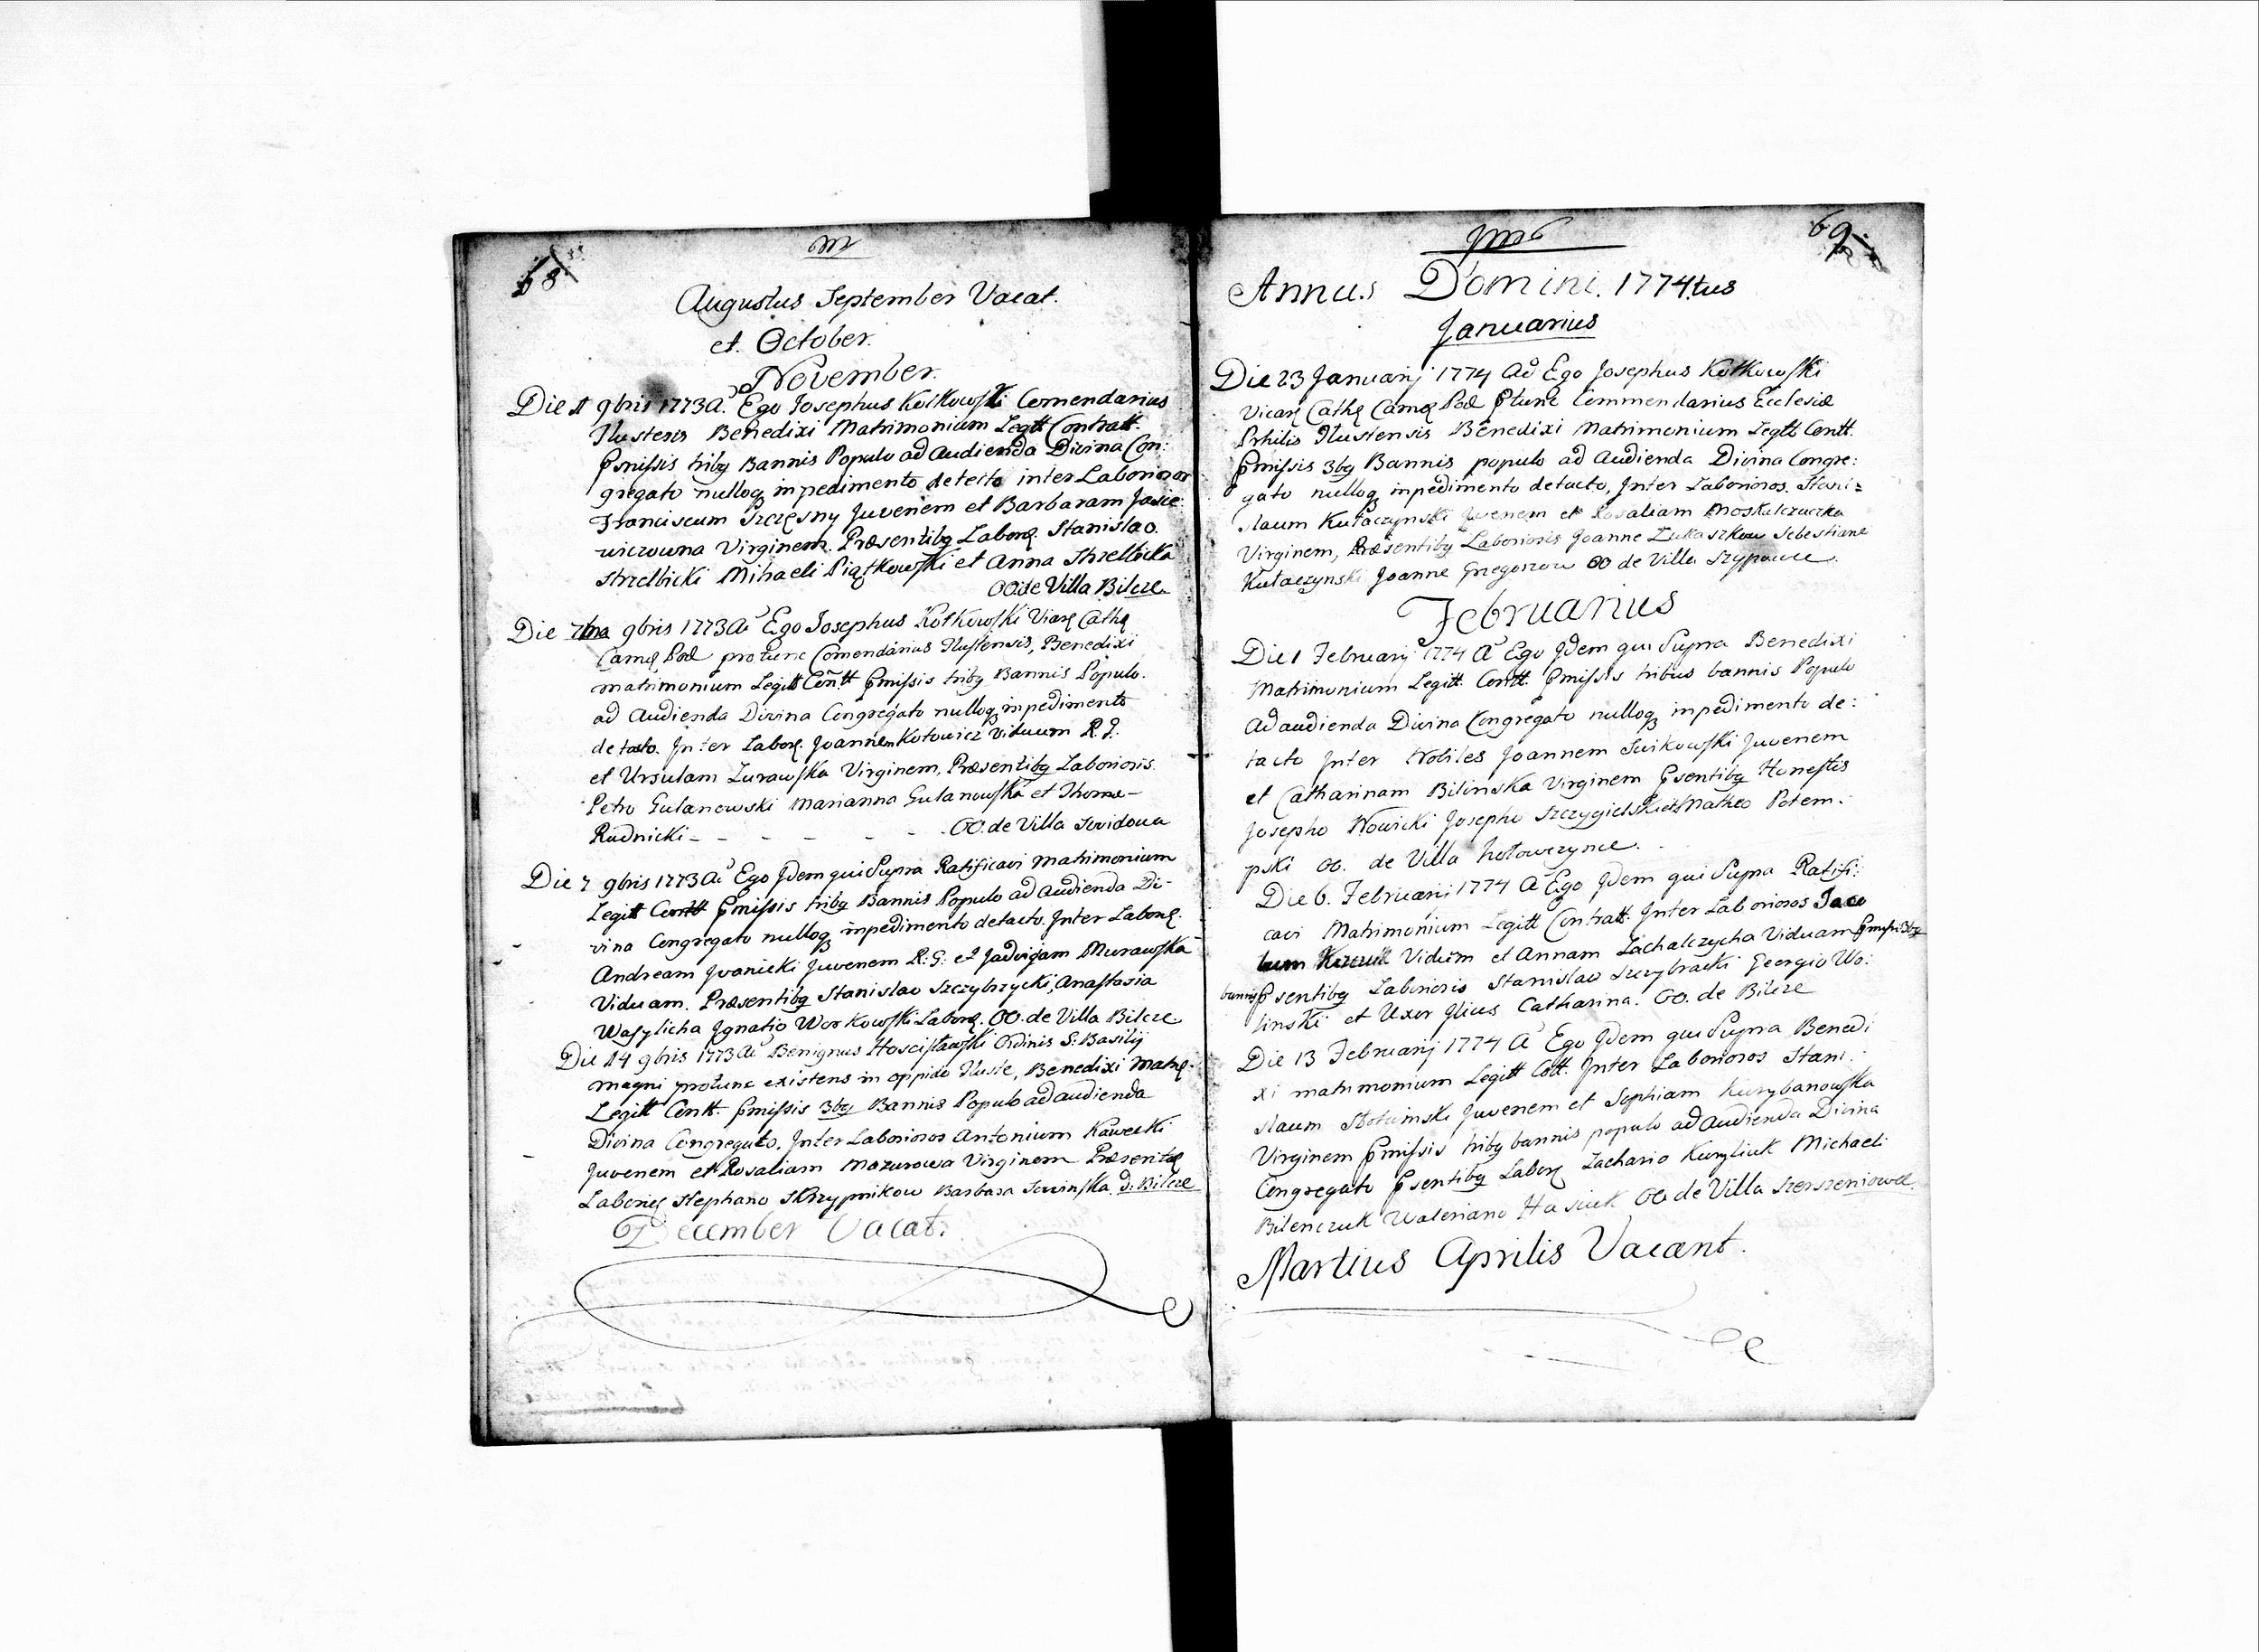 68
m
Augustus September Vacat.
et October.
November.
Die 1 9bris 1773 A. Ego Josephus Kotkowski Comendarius
Ilustesis Benedixi Matrimonium Legtt Contratt.
Pmissis tribq Bannis Populo ad Audienda Divina Con:
gregato nulloq impedimento detecto inter Laboriosos
Franciscum Szczęsny Juvenem et Barbaram Jasie
wiczowna Virginem. Præsentibq Laborq. Stanislao.
Strzelbicki Mihaeli Piątkowski et Anna Strzelbicka
OO. de Villa Bilcze
Die 7ma 9bris 1773 A Ego Josephus Kotkowski Vicarq Cathq
Camq Pod protunc Comendarius Ilustensis, Benedixi
matrimonium Legitt Contt Pmissis tribq Bannis Populo.
ad Audienda Divina Congregato nulloq impedimento
detacto. Inter Laborq. Joannem Kotowicz Viduum R. G.
et Ursulam Zurawska Virginem, Præsentibq Laboriosis.
Petro Gulanowski Marianna Gulanowska et Thoma -
Rudnicki - - - - - - OO. de Villa Swidowa
Die 7 9bris 1773 A Ego Idem qui Supra Ratificavi Matrimonium
Legitt Contt Pmissis tribq Bannis Populo ad Audienda Di-
vina Congregato nulloq impedimento detacto. Inter Laborq.
Andream Iwanicki Juvenem R: G: et Jadvigam Murawska
Viduam. Præsentibq Stanislao Szczybrzycki, Anastasia
Wasylicha Ignatio Workowski Laborq. OO. de Villa Bilcze
Die 14 9bris 1773 A Benignus Hoscisławski Ordinis S: Basilij
magni protunc existens in oppido Iluste, Benedixi Matrq.
Legitt Contt. Pmissis 3bq Bannis Populo ad audienda
Divina Congregato. Inter Laboriosos Antonium Kawecki
Juvenem et Rosaliam Mazurowa Virginem Præsentq
Laborq Stephano Skrzypnikow Barbara d: Bilcze
December Vacat.
69
Annus Domini. 1774tus
Januarius
Die 23 Januarij 1774 A Ego Josephus Kotkowski
Vicarq Cathq Camq Pod Ptunc Commendarius Ecclesiæ
Prhilis Ilustensis Benedixi Matrimonium Legtt Contt.
Pmissis 3bq Bannis populo ad Audienda Divina Congre:
gato nulloq inpedimento detacto, Inter Laboriosos. Stani=
slaum Kułaczynski Juvenem et Rosaliam Moskalczuczka
Virginem, Præsentibq Laboriosis Joanne Łukaszkow Sebestiane
Kułaczynski Joanne Gregorzow OO de Villa Szypowce.
Februarius
Die 1 Februarij 1774 A Ego Idem qui Supra Benedixi
Matrimonium Legitt. Contt. Pmissis tribus bannis Populo
Ad audienda Divina Congregato nulloq inpedimento de:
tacto Inter Nobiles Joannem Juvenem
et Catharinam Bilinska Virginem Psentibq Honestis
Josepho Nowicki Josepho Szczygielski et Matheo Potem:
pski OO. de Villa hołowczynce.
Die 6. Februarij 1774 A Ego Idem qui Supra Ratifi:
cavi Matrimonium Legitt Contratt. Inter Laboriosos Jaco
bum Viduum et Annam Zachalczycha Viduam Pmissis 3bq
bannis Psentibq Laboriosis Stanislao Szczybracki Georgio Wo:
linski et Uxor Ilius Catharina. OO. de Bilcze
Die 13 Februarij 1774 A Ego Idem qui Supra Benedi
xi matrimonium Legitt Cott. Inter Laboriosos Stani:
slaum Juvenem et Sophiam Kurybanowska
Virginem Pmissis tribq bannis populo ad Audienda Divina
Congregato Psentibq Laborq Zachario Kuryliuk Michaeli
Bilenczuk Waleriano Hasiuk OO de Villa Szerszeniowce.
Martius Aprilis Vacant.